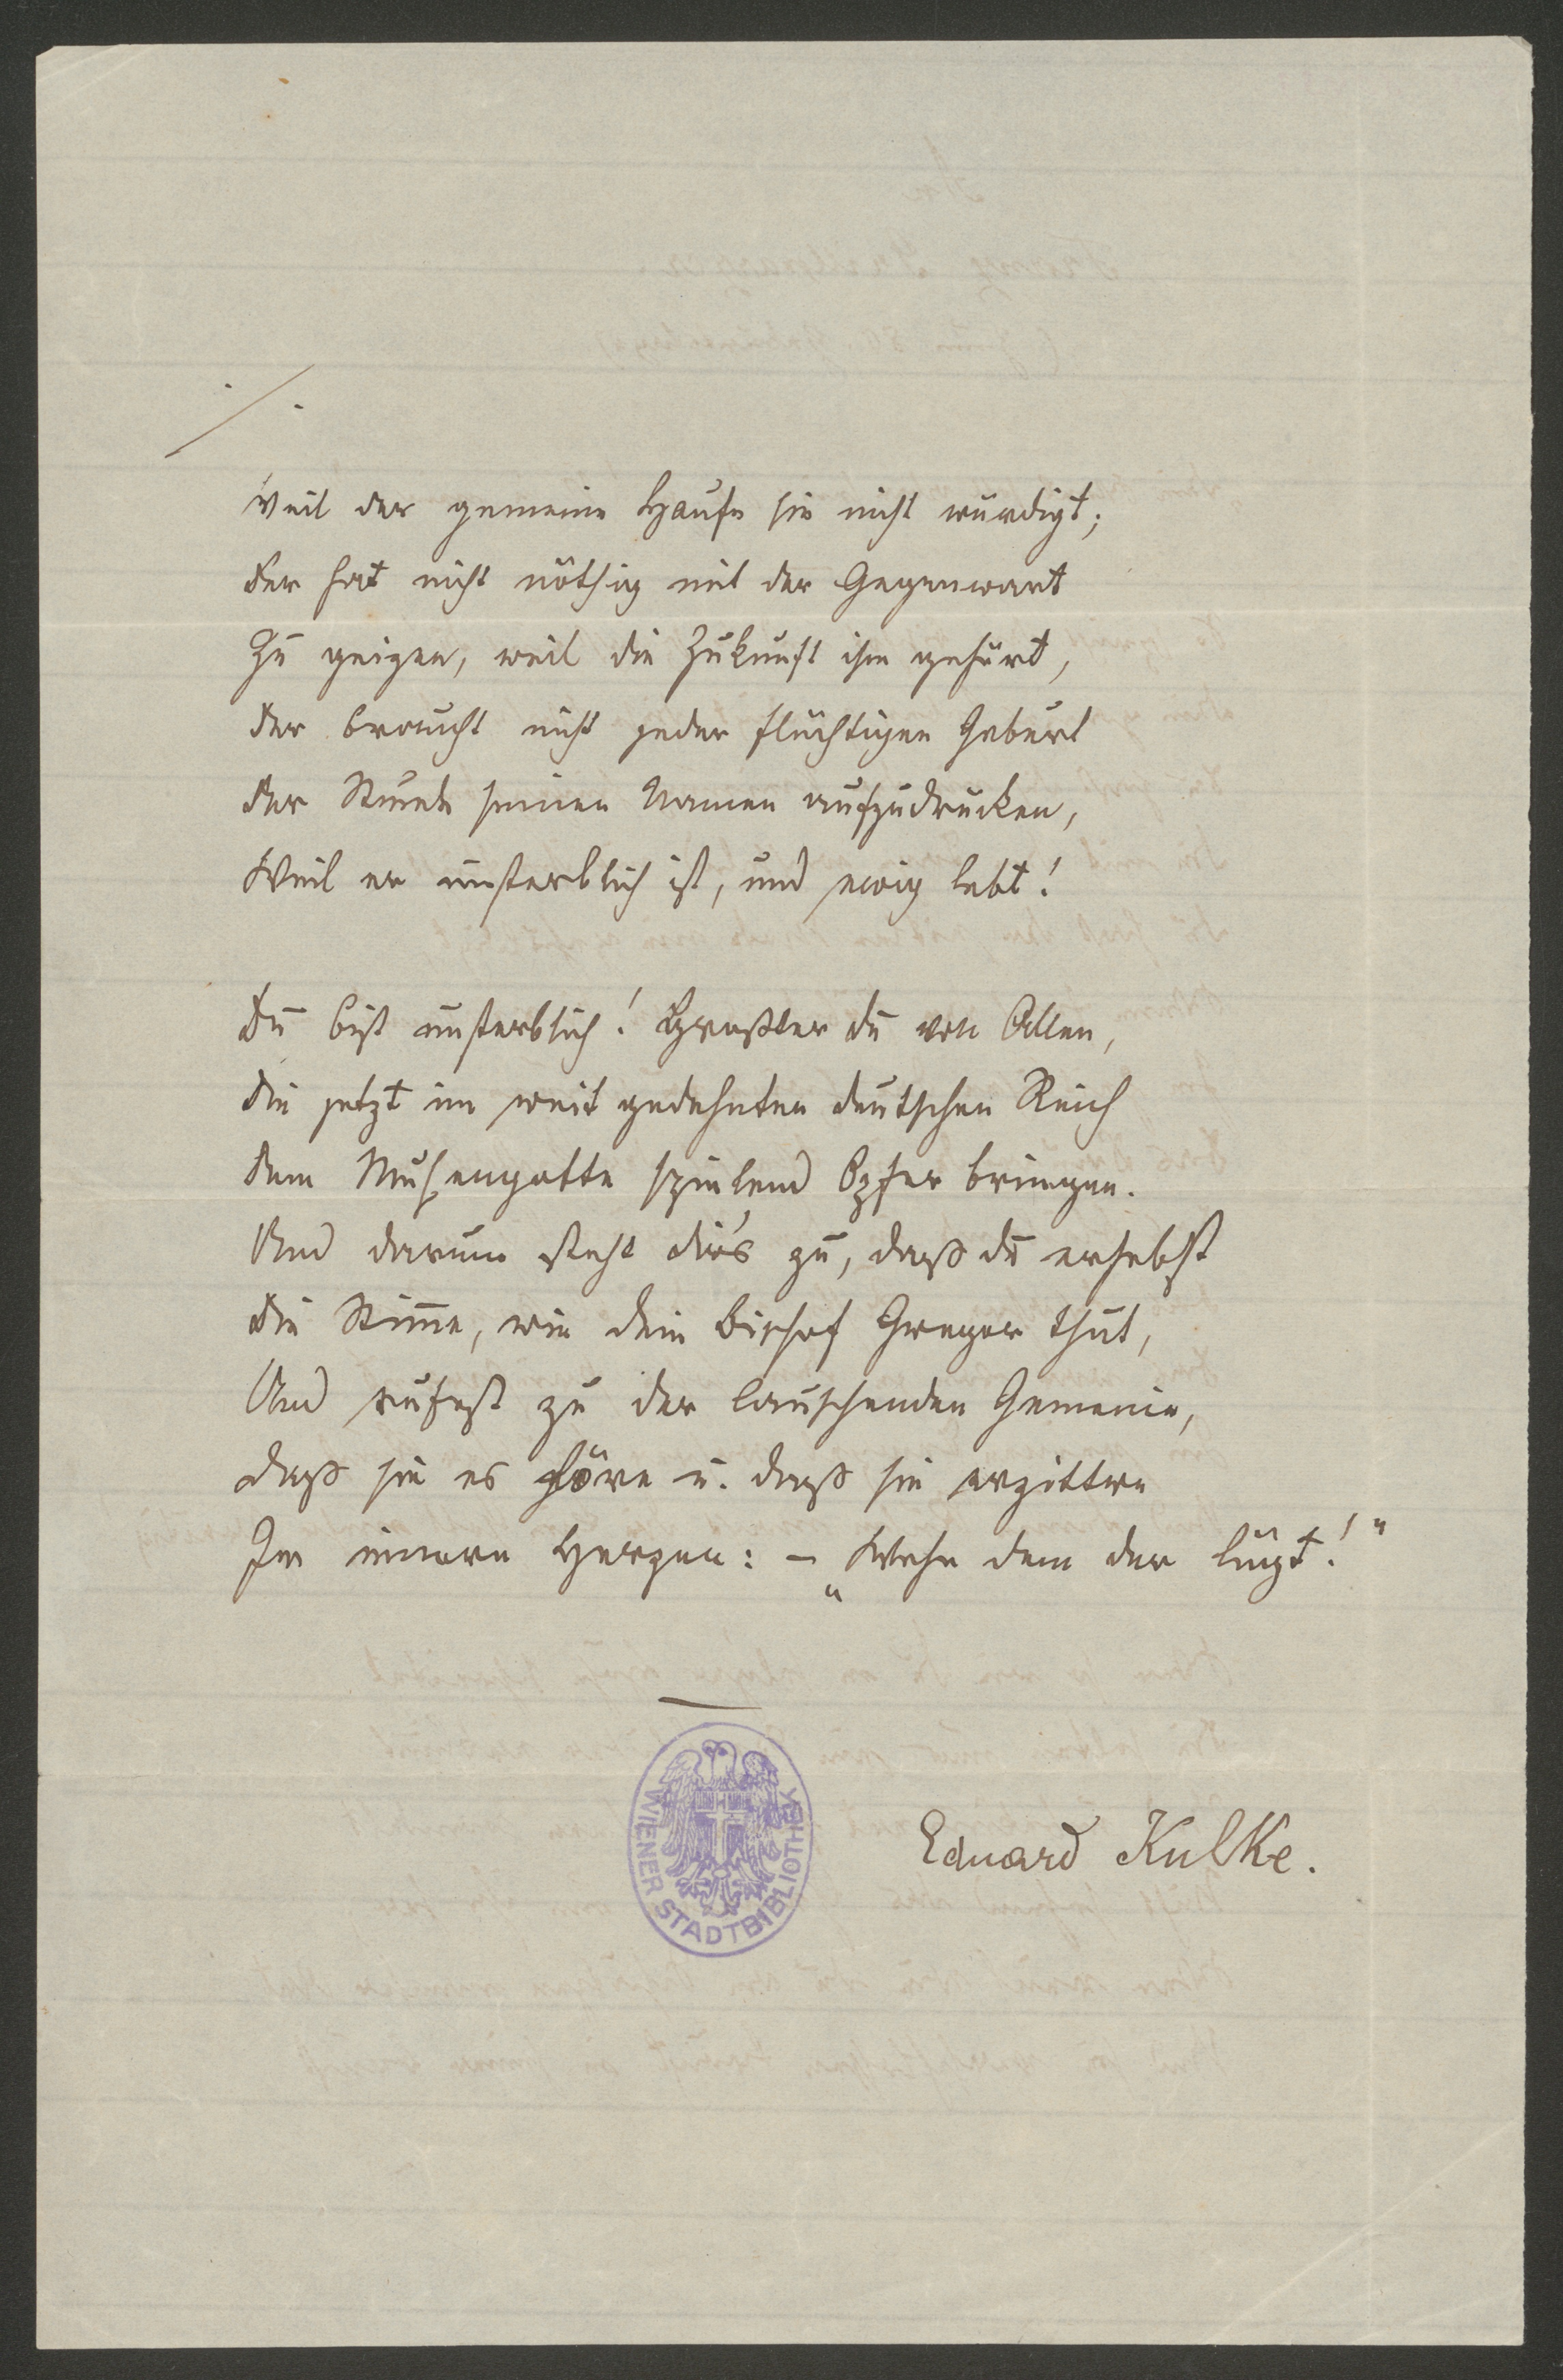 ./.
Weil der gemeine Haufe sie nicht würdigt;
Der hat nicht nöthig mit der Gegenwart
Zu geizen, weil die Zukunft ihm gehört,
Der braucht nicht jeder flüchtigen Geburt
Der Stunde seinen Namen aufzudrucken,
Weil er unsterblich ist, und ewig lebt!
Du bist unsterblich! Großter du von Allen,
Die jetzt im weit gedehnten deutschen Reich
Dem Musengotte spielend Opfer bringen.
Und darum steht dir's zu, daß du erhebst
Die Stimme, wie dein Bischof Gregor thut,
Und rufest zu der lauschenden Gemeine,
Daß sie es höre u. daß sie erzittre
Im innern Herzen: – „Wehe dem der lügt!"
Eduard Kulke.
WIENER STADTBIBLIOTHEK